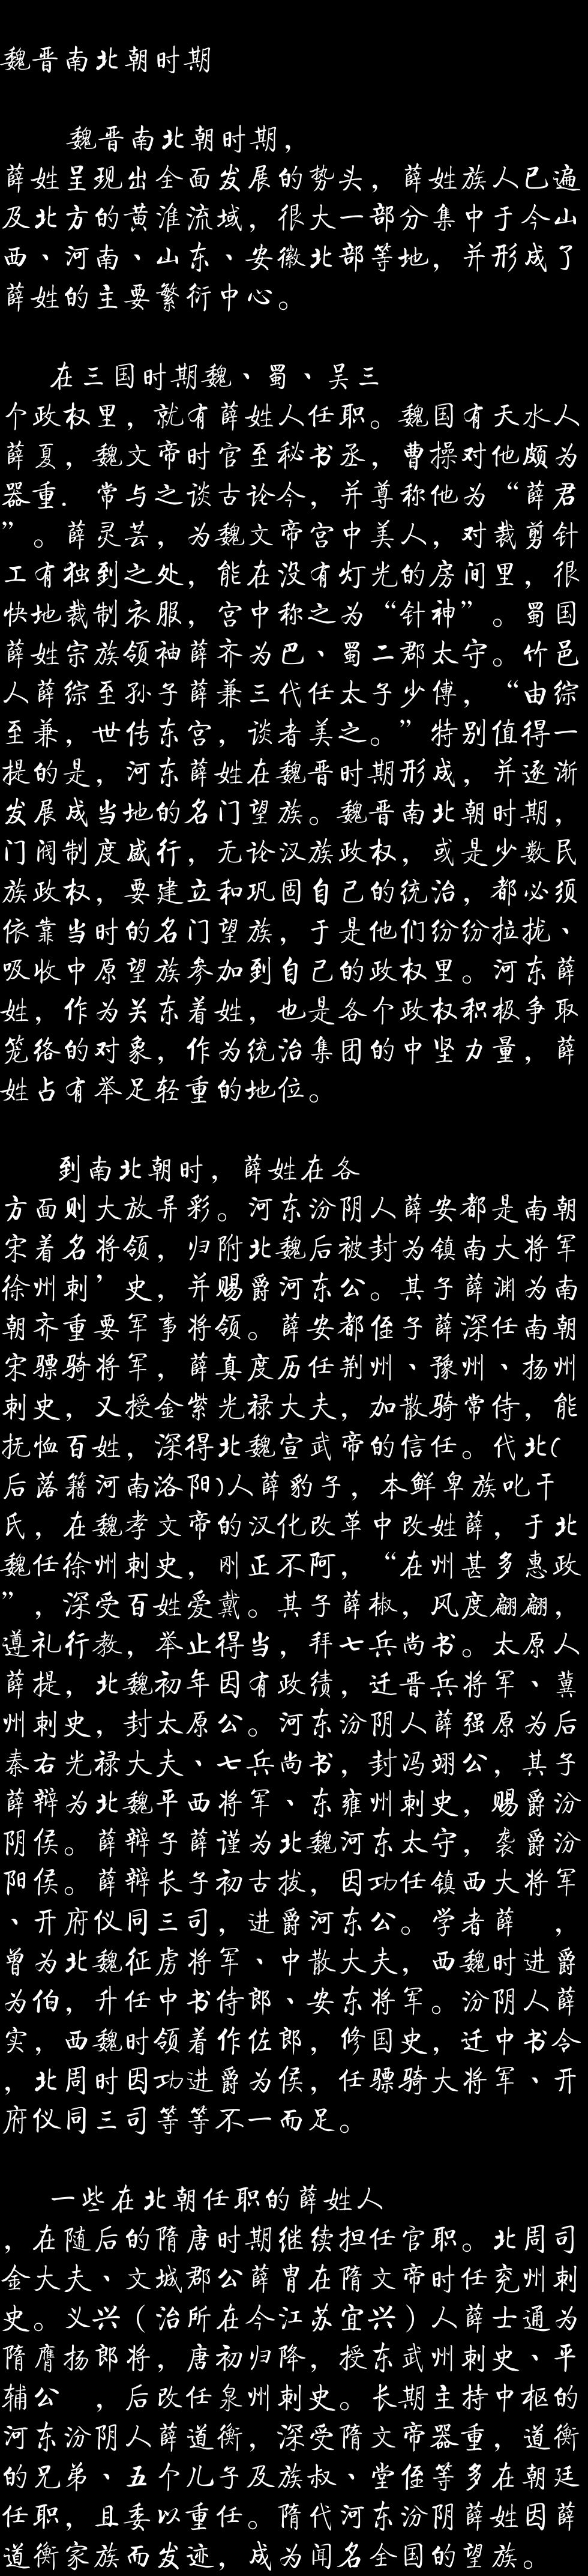 魏晋南北朝时期
魏晋南北朝时期，
薛姓呈现出全面发展的势头，薛姓族人已遍
及北方的黄淮流域，很大一部分集中于今山
西、河南、山东、安徽北部等地，并形成了
薛姓的主要繁衍中心。
在三国时期魏、蜀、吴三
个政权里，就有薛姓人任职。魏国有天水人
薛夏，魏文帝时官至秘书丞，曹操对他颇为
器重．常与之谈古论今，并尊称他为“薛君
”。薛灵芸，为魏文帝宫中美人，对裁剪针
工有独到之处，能在没有灯光的房间里，很
快地裁制衣服，宫中称之为“针神”。蜀国
薛姓宗族领袖薛齐为巴、蜀二郡太守。竹邑
人薛综至孙子薛兼三代任太子少傅，“由综
至兼，世传东宫，谈者美之。”特别值得一
提的是，河东薛姓在魏晋时期形成，并逐渐
发展成当地的名门望族。魏晋南北朝时期，
门阀制度盛行，无论汉族政权，或是少数民
族政权，要建立和巩固自己的统治，都必须
依靠当时的名门望族，于是他们纷纷拉拢、
吸收中原望族参加到自己的政权里。河东薛
姓，作为关东着姓，也是各个政权积极争取
笼络的对象，作为统治集团的中坚力量，薛
姓占有举足轻重的地位。
到南北朝时，薛姓在各
方面则大放异彩。河东汾阴人薛安都是南朝
宋着名将领，归附北魏后被封为镇南大将军
徐州刺’史，并赐爵河东公。其子薛渊为南
朝齐重要军事将领。薛安都侄子薛深任南朝
宋骠骑将军，薛真度历任荆州、豫州、扬州
刺史，又授金紫光禄大夫，加散骑常侍，能
抚恤百姓，深得北魏宣武帝的信任。代北(
后落籍河南洛阳)人薛豹子，本鲜卑族叱干
氏，在魏孝文帝的汉化改革中改姓薛，于北
魏任徐州刺史，刚正不阿，“在州甚多惠政
”，深受百姓爱戴。其子薛椒，风度翩翩，
遵礼行教，举止得当，拜七兵尚书。太原人
薛提，北魏初年因有政绩，迁晋兵将军、冀
州刺史，封太原公。河东汾阴人薛强原为后
秦右光禄大夫、七兵尚书，封冯翊公，其子
薛辩为北魏平西将军、东雍州刺史，赐爵汾
阴侯。薛辩子薛谨为北魏河东太守，袭爵汾
阳侯。薛辩长子初古拔，因功任镇西大将军
、开府仪同三司，进爵河东公。学者薛　，
曾为北魏征虏将军、中散大夫，西魏时进爵
为伯，升任中书侍郎、安东将军。汾阴人薛
实，西魏时领着作佐郎，修国史，迁中书令
，北周时因功进爵为侯，任骠骑大将军、开
府仪同三司等等不一而足。
一些在北朝任职的薛姓人
，在随后的隋唐时期继续担任官职。北周司
金大夫、文城郡公薛胄在隋文帝时任兖州刺
史。义兴（治所在今江苏宜兴）人薛士通为
隋鹰扬郎将，唐初归降，授东武州刺史、平
辅公　，后改任泉州刺史。长期主持中枢的
河东汾阴人薛道衡，深受隋文帝器重，道衡
的兄弟、五个儿子及族叔、堂侄等多在朝廷
任职，且委以重任。隋代河东汾阴薛姓因薛
道衡家族而发迹，成为闻名全国的望族。